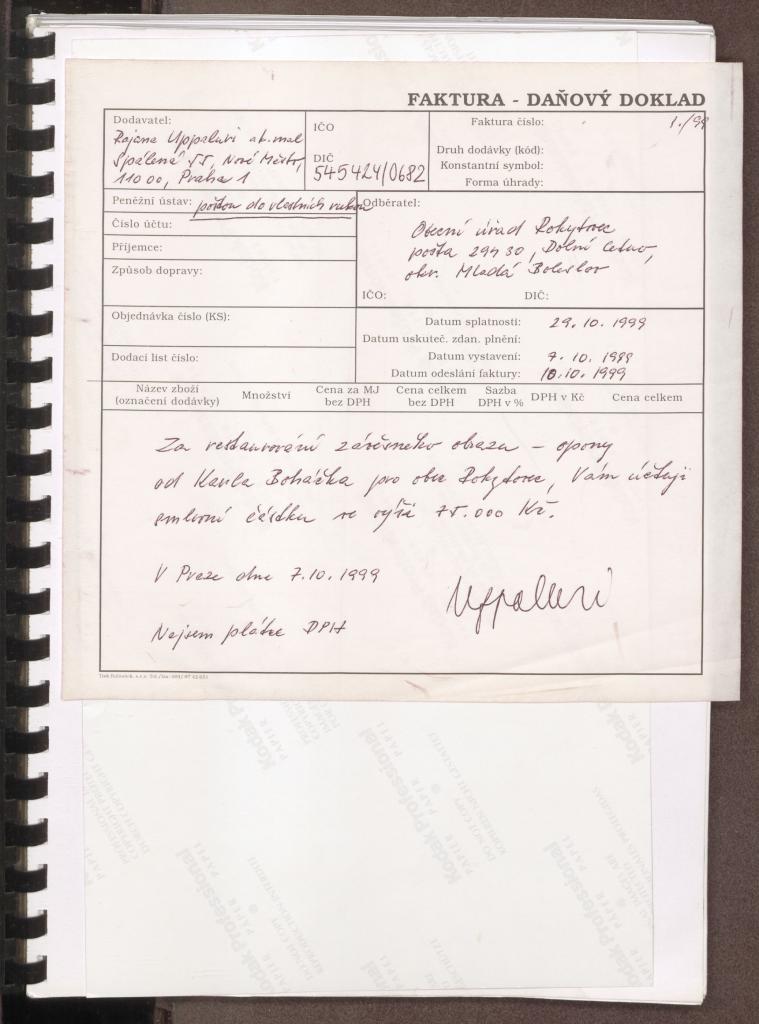 FAKTURA - DAŇOVÝ DOKLAD
Dodavatel:
Rajana Uppaluri ak. mal.
Spálená 55, Nové Město,
110 00, Praha 1
IČO
DIČ
545424/0682
Faktura číslo: 1./99
Druh dodávky (kód):
Konstantní symbol:
Forma úhrady:
Peněžní ústav: poštou do vlastních rukou
Číslo účtu:
Příjemce:
Způsob dopravy:
Odběratel:
Obecní úřad Rokytovec
pošta 294 30, Dolní Cetno,
okr. Mladá Boleslav
IČO: DIČ:
Objednávka číslo (KS):
Dodací list číslo:
Datum splatnosti: 29.10.1999
Datum uskuteč. zdan. plnění:
Datum vystavení: 7.10.1999
Datum odeslání faktury: 10.10.1999
Název zboží
(označení dodávky)
Množství
Cena za MJ
bez DPH
Cena celkem
bez DPH
Sazba
DPH v %
DPH v Kč
Cena celkem
Za restaurování závěsného obrazu – opony
od Karla Boháčka pro obec Rokytovec, Vám účtuji
smluvní částku ve výši 75.000 Kč.
V Praze dne 7.10.1999
Uppaluri
Nejsem plátce DPH
Kodak Professional
PAPIER PAPER PAPEL
Kodak Professional
PAPIER PAPER PAPEL
DO NOT COPY
Kodak Professional
PAPIER PAPER PAPEL
Kodak Professional
PAPIER PAPER PAPEL
DO NOT COPY